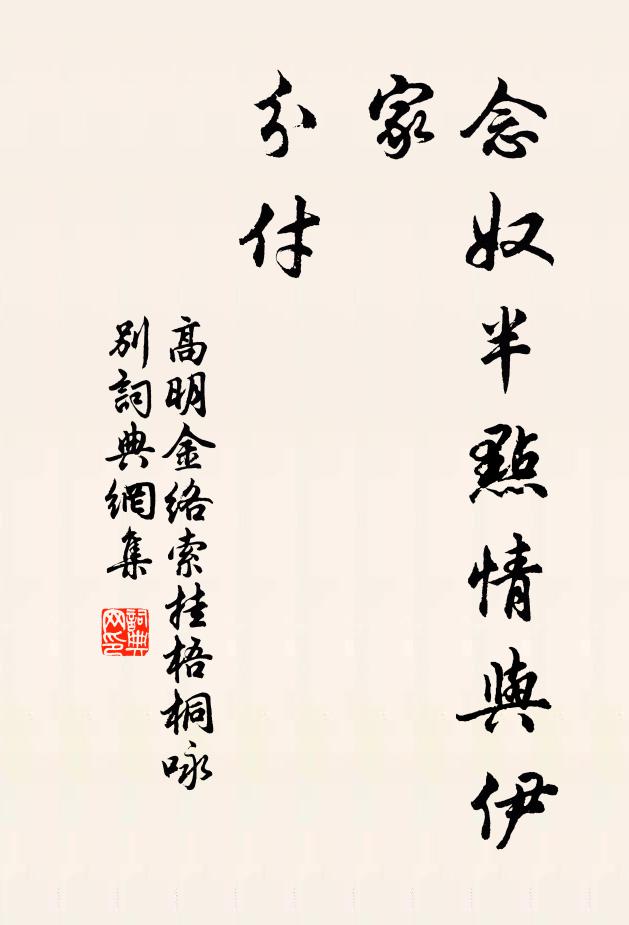 念奴半點情與伊
家
分付
高明金絡索挂梧桐咏
別詞典網集
詞典
网印